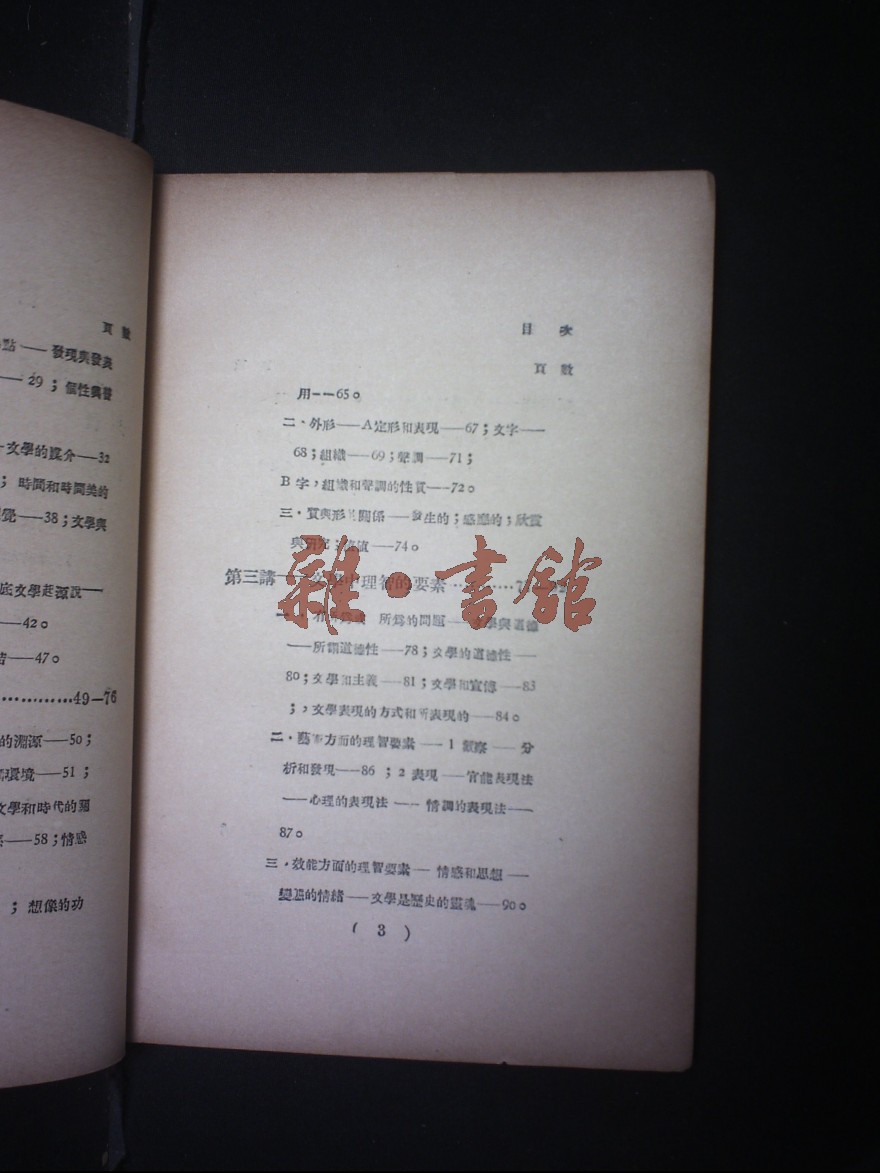 頁數
點——發現與發表
——29；個性與普
文學的媒介——32
；時間和時間美的
覺——38；文學與
底文學起源說——
——42。
——47。
…………49—76
的淵源——50；
環境——51；
文學和時代的關
——58；情感
；想像的功
目次
頁數
用——65。
二．外形——A定形和表現——67；文字——
68；組織——69；聲調——71；
B字，組織和聲調的性質——72。
三．質與形其關係——發生的；感應的；欣賞
與研究；——74。
第三講 文學中理智的要素
所爲的問題——文學與道德
——所謂道德性——78；文學的道德性——
80；文學和主義——81；文學和宣傳——83
；，文學表現的方式和所表現的——84。
二．藝術方面的理智要素——1 觀察——分
析和發現——86；2 表現——官能表現法
——心理的表現法——情調的表現法——
87。
三．效能方面的理智要素——情感和思想——
變態的情緒——文學是歷史的靈魂——90。
( 3 )
雜·書館